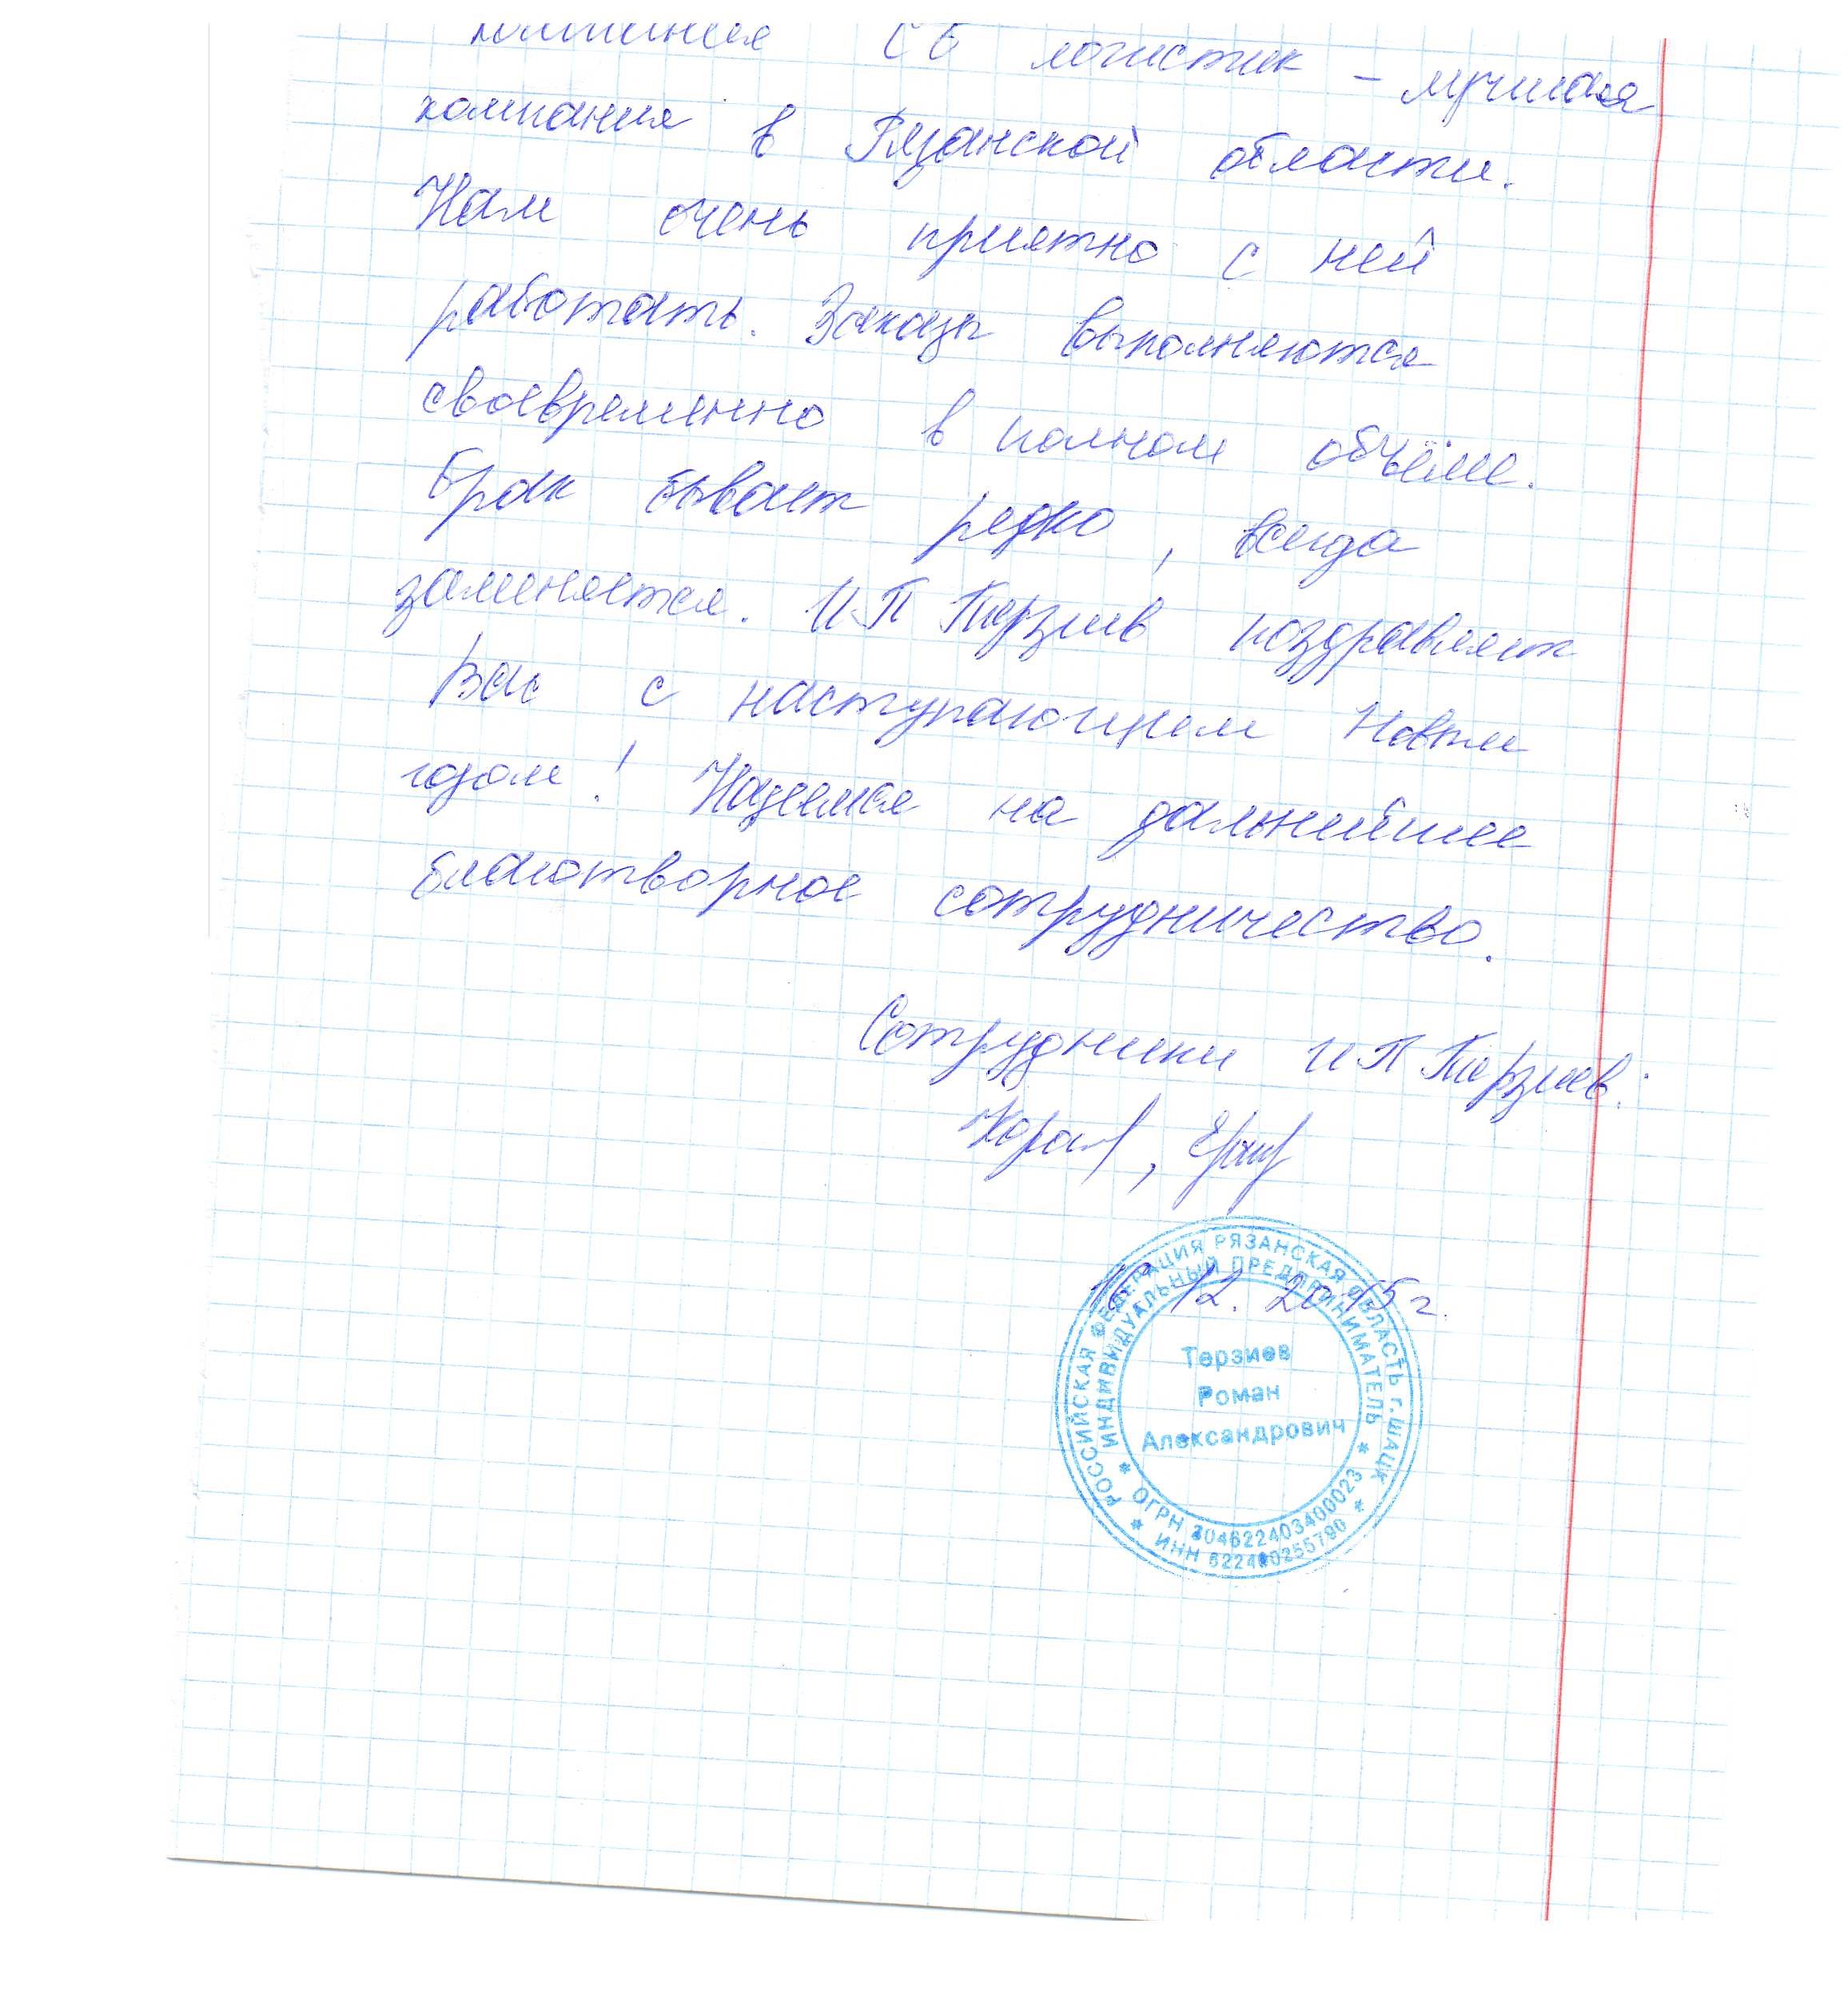 компания СБ логистик - лучшая
компания в Рязанской области.
Нам очень приятно с ней
работать. Заказы выполняются
своевременно в полном объёме.
Брак бывает редко, всегда
заменяется. ИП Терзиев поздравляет
Вас с наступающим Новым
годом! Надеемся на дальнейшее
благотворное сотрудничество.
Сотрудники ИП Терзиев:
12. 2015 г.
РОССИЙСКАЯ ФЕДЕРАЦИЯ РЯЗАНСКАЯ ОБЛАСТЬ г. ШАЦК
ИНДИВИДУАЛЬНЫЙ ПРЕДПРИНИМАТЕЛЬ
Терзиев
Роман
Александрович
* ОГРН 304622403400023 *
* ИНН *